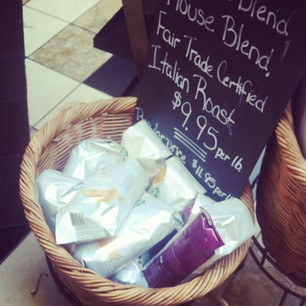 Blend
House Blend,
Fair Trade Certified
Italian Roast
$9.95 per lb.
$11.95 per lb